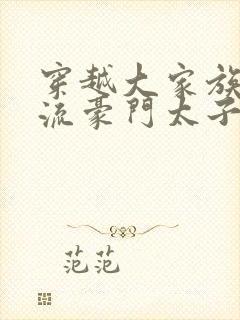 穿越大家族
流豪門太子
范范